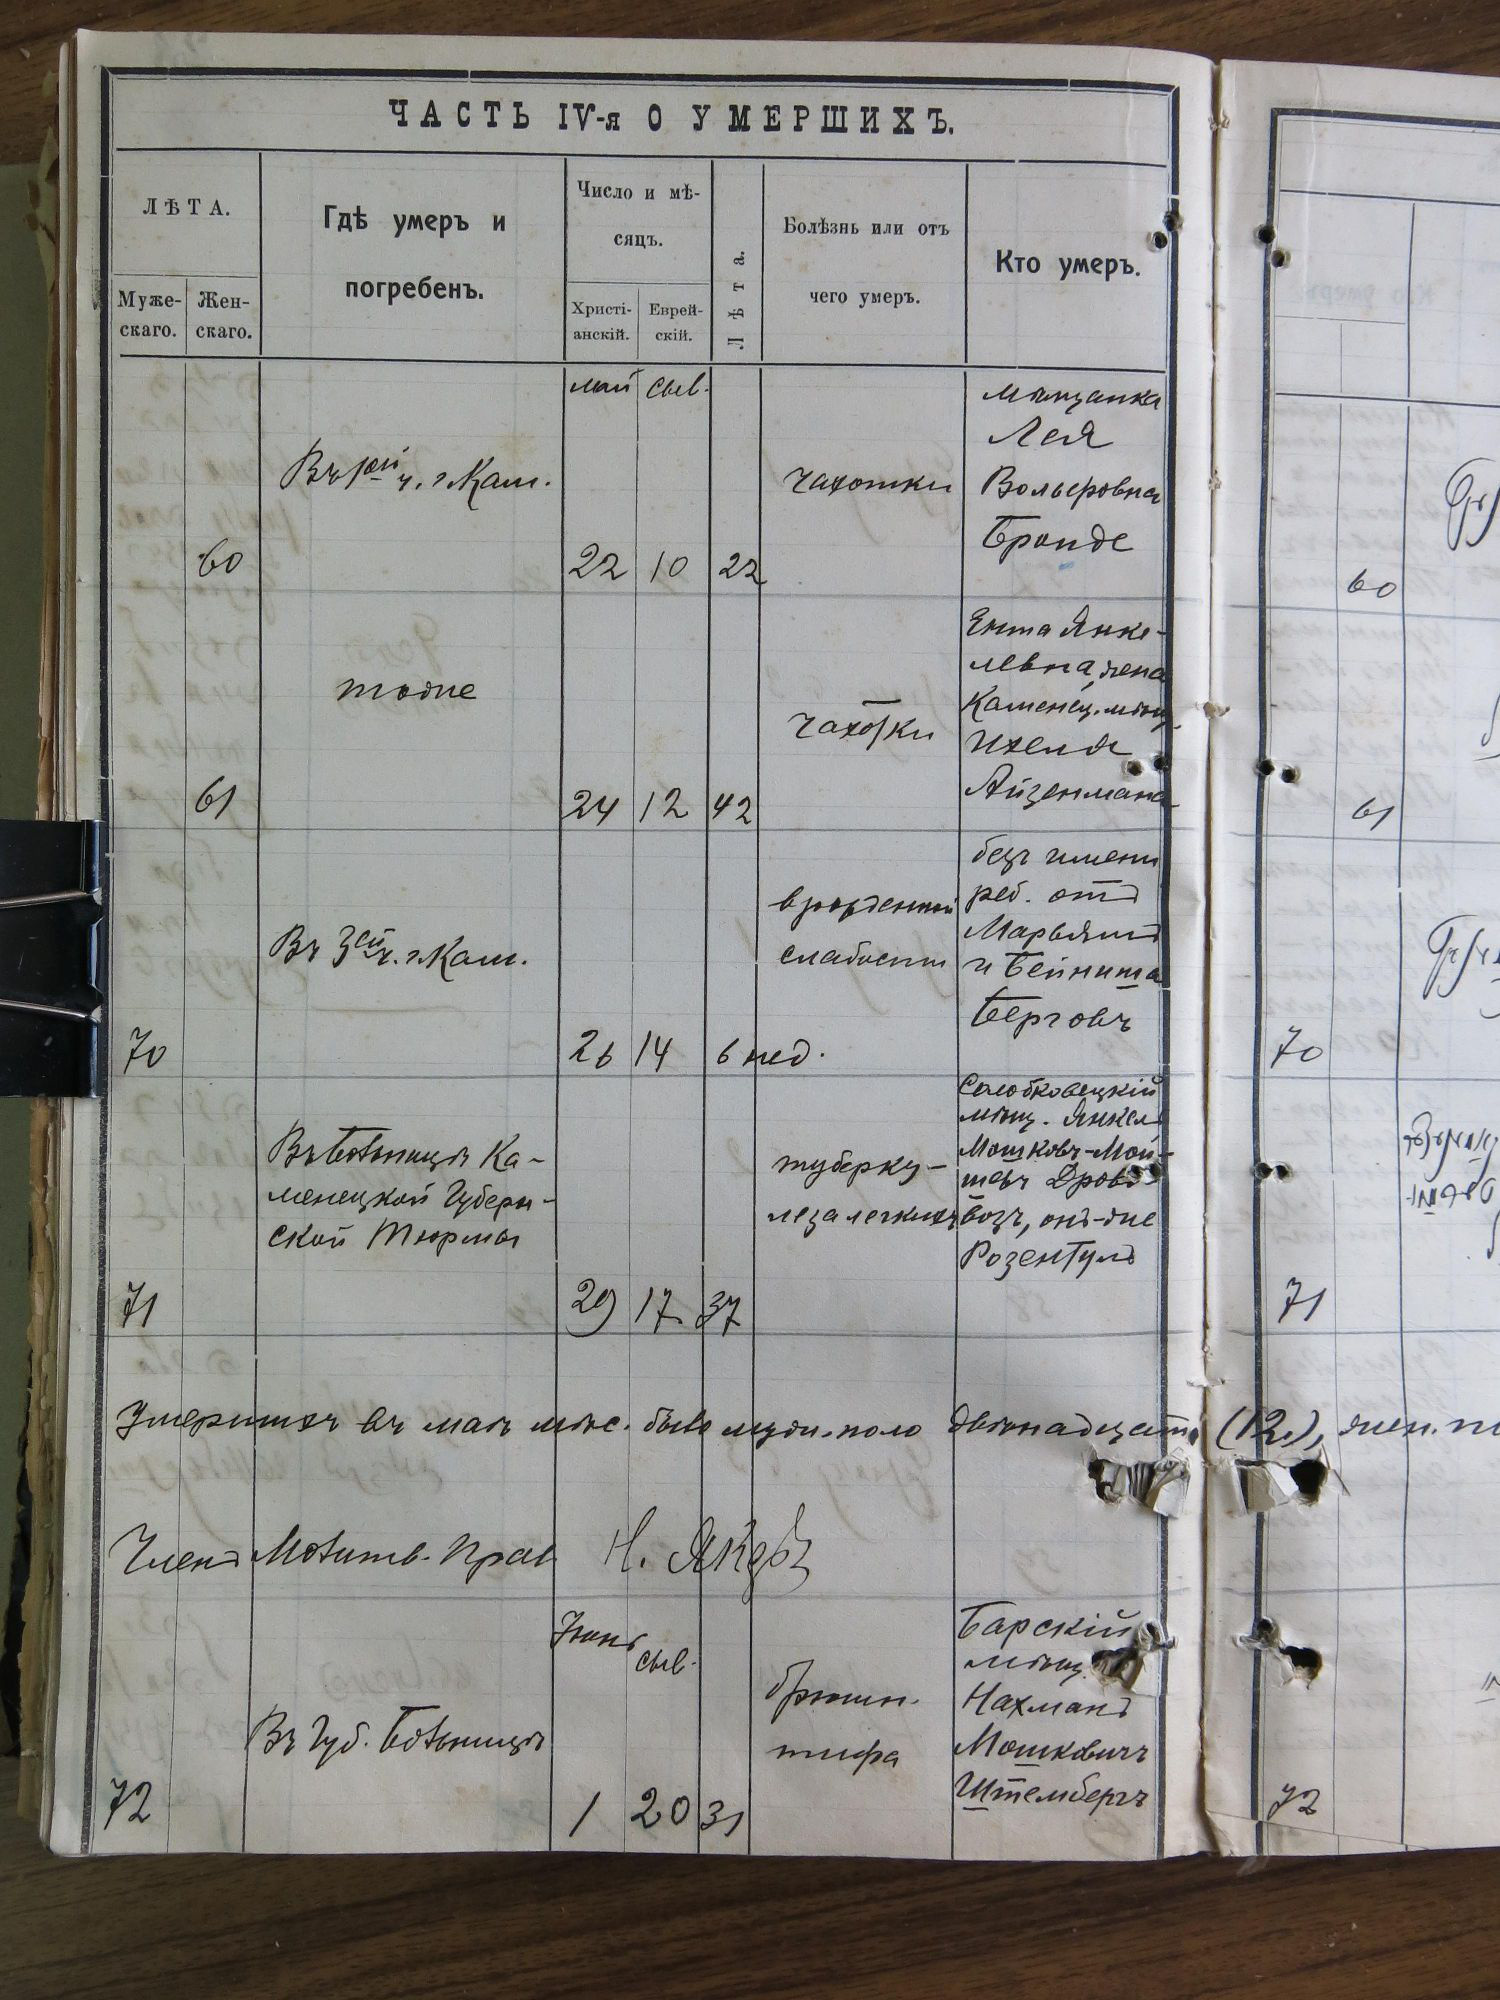 ЧАСТЬ IV-я О УМЕРШИХЪ.
ЛѢТА.
Муже-
скаго.
Жен-
скаго.
Гдѣ умеръ и
погребенъ.
Число и мѣ-
сяцъ.
Христі-
анскій.
Еврей-
скій.
Лѣта.
Болѣзнь или отъ
чего умеръ.
Кто умеръ.
май сыв.
60
Въ 1ой ч. г. Кам.
22 10 22
чахотки
мѣщанка
Лея
Вольфовна
Бронде
60
61
тоже
24 12 42
чахотки
Ента Янке-
левна, жена
Каменец. мѣщ.
Ихеля
Айзенмана
61
70
Въ 3ей ч. г. Кам.
26 14 6 нед.
врожденной
слабости
безъ имени
реб. отъ
Марьямъ
и Бейниша
Берговъ
70
71
Въ Больницѣ Ка-
менецкой Губерн-
ской Тюрмы
29 17 37
туберку-
леза легкихъ
Солобковецкій
мѣщ. Янкель
Мошковъ-Мой-
шевъ Дрово-
возъ, онъ-же
Розентулъ
71
Умершихъ въ маѣ мѣс. было муж. поло двѣнадцать (12), жен. по
Членъ Молитв. Прав
Іюнь
сыв.
72
Въ Губ. Больницѣ
1 20 31
брюшн.
тифа
Барскій
мѣщ.
Нахманъ
Мошковичъ
Штембергъ
72